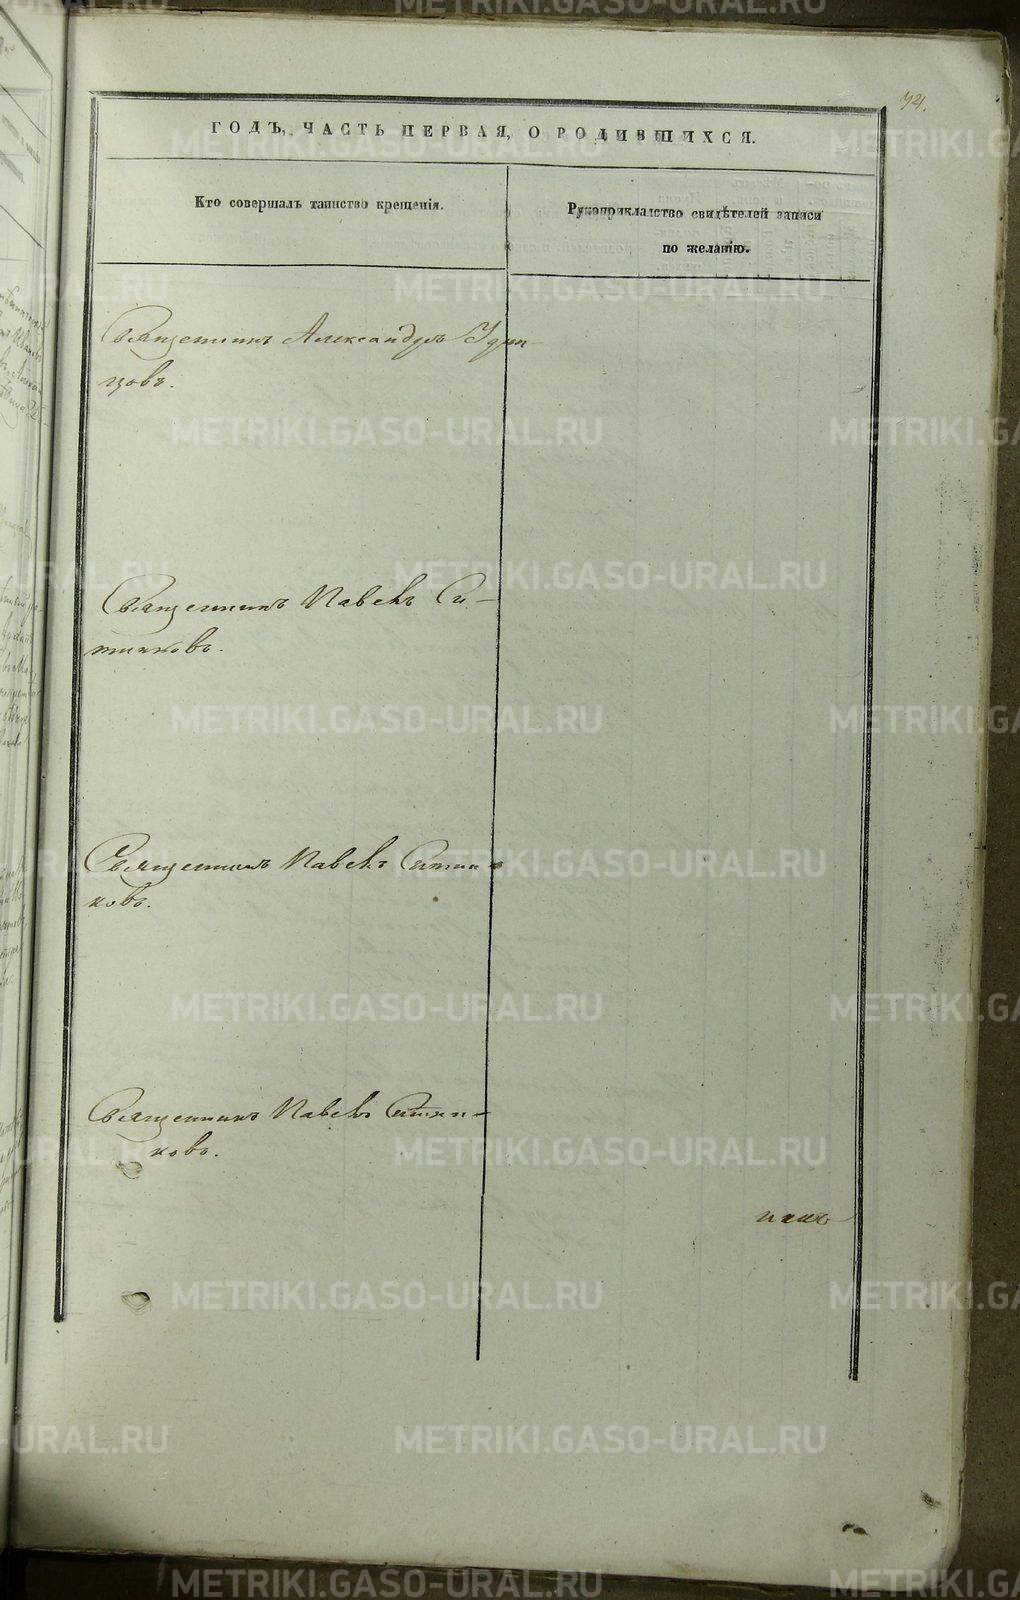 74.
ГОДЪ, ЧАСТЬ ПЕРВАЯ, О РОДИВШИХСЯ.
Кто совершалъ таинство крещенія.
Рукоприкладство свидѣтелей записи
по желанію.
Священникъ Александръ Удин-
цовъ.
Священникъ Павелъ Си-
тниковъ.
Священникъ Павелъ Ситни-
ковъ.
Священникъ Павелъ Ситни-
ковъ.
METRIKI.GASO-URAL.RU